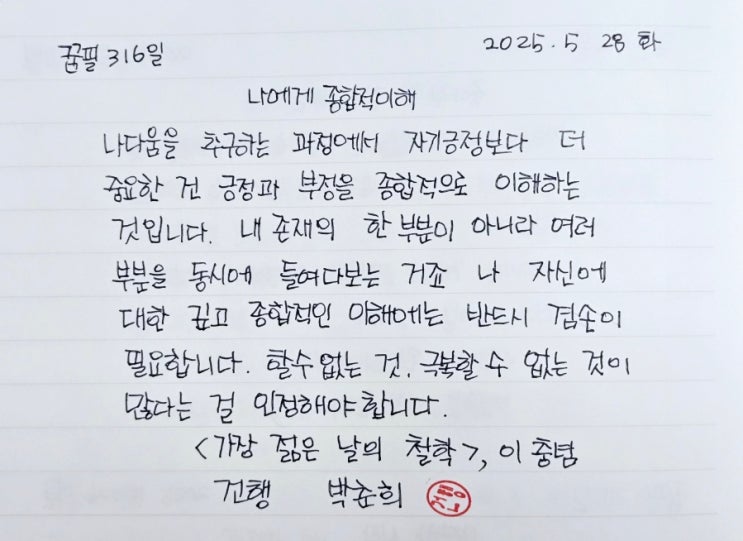 꿈필 316일
2025. 5 28 화
나에게 종합적이해
나다움을 추구하는 과정에서 자기긍정보다 더
중요한 건 긍정과 부정을 종합적으로 이해하는
것입니다. 내 존재의 한 부분이 아니라 여러
부분을 동시에 들여다보는 거죠 나 자신에
대한 깊고 종합적인 이해에는 반드시 겸손이
필요합니다. 할수 없는 것, 극복할 수 없는 것이
많다는 걸 인정해야 합니다.
<가장 젊은 날의 철학>, 이 충녕
건행 박춘희
건행